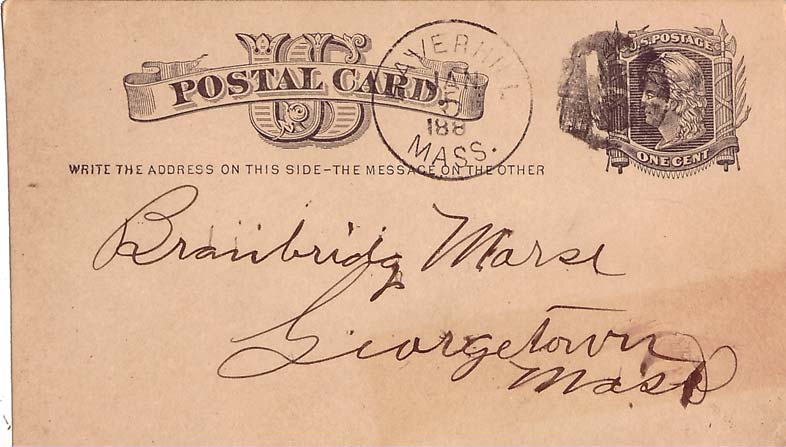 US
POSTAL CARD
HAVERHILL
JAN
188
MASS.
U.S. POSTAGE
ONE CENT
WRITE THE ADDRESS ON THIS SIDE–THE MESSAGE ON THE OTHER
Morse
Georgetown
Mass